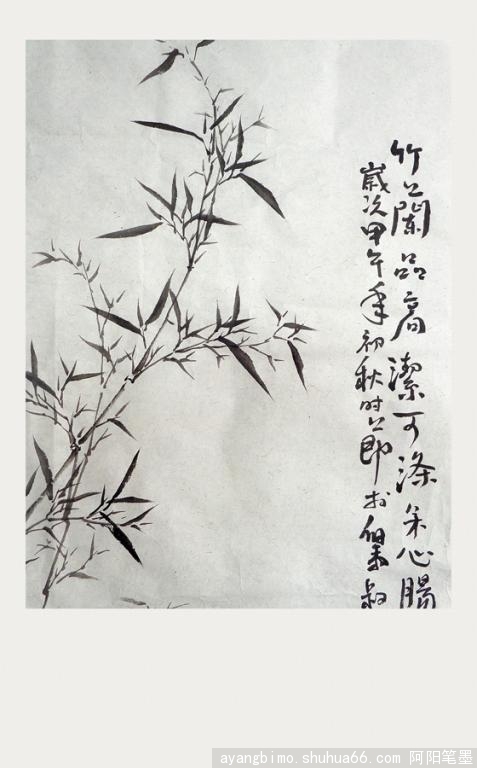 竹闌品高潔可滌心腸
歲次甲午年初秋时節於
ayangbimo.shuhua66.com 阿阳笔墨